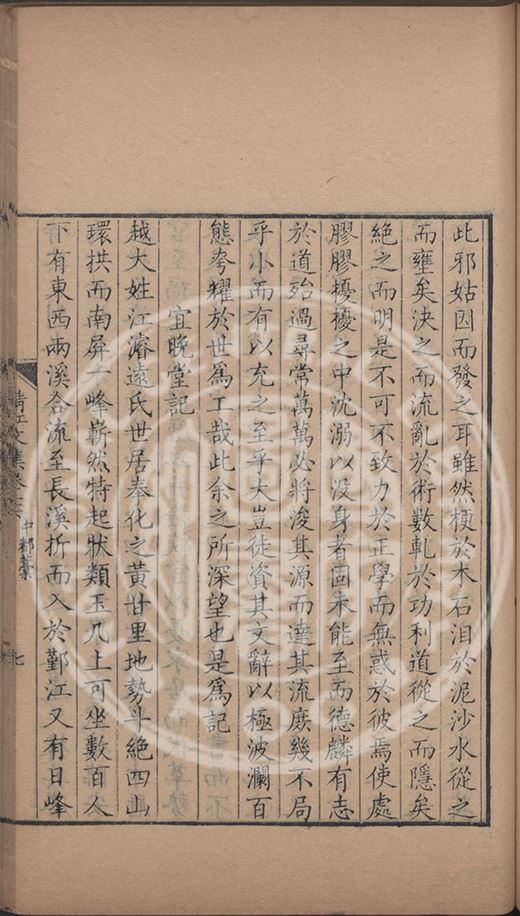 此邪姑因而發之耳雖然梗於木石汩於泥沙水從之
而壅矣決之而流亂於術數軋於功利道從之而隱矣
絕之而明是不可不致力於正學而無惑於彼焉使處
膠膠擾擾之中沈溺以没身者固未能至而德麟有志
於道殆過尋常萬萬必將浚其源而達其流庶幾不局
乎小而有以充之至乎大豈徒資其文辭以極波瀾百
態夸耀於世爲工哉此余之所深望也是爲記
宜晚堂記
越大姓江濬遠氏世居奉化之黄甘里地勢斗絕四山
環拱而南屏一峰嶄然特起狀類玉几上可坐數百人
下有東西兩溪合流至長溪折而入於鄞江又有日峰
清江文集卷
中都稾
七